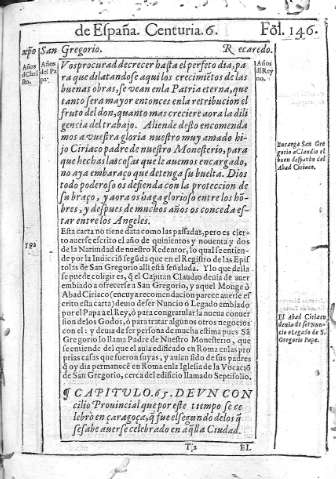 de España. Centuria. 6. Fol. 146.
xp̃o San Gregorio. Recaredo.
Años d'Christo.
Años del Papa.
Años del Reyno.
Vos procurad de crecer hasta el perfeto dia, pa
ra que dilatandose aqui los crecimiẽtos de las
buenas obras, se vean en la Patria eterna, que
tanto sera mayor entonces en la retribucion el
fruto del don, quanto mas creciere aora la dili
gencia del trabajo. Aliende desto encomenda
mos a vuestra gloria nuestro muy amado hi-
jo Ciriaco padre de nuestro Monesterio, para
que hechas las cosas que le auemos encargado,
no aya embaraço que detenga su buelta. Dios
todo poderoso os defienda con la proteccion de
su braço, y aora os haga glorioso entre los hõ-
bres, y despues de muchos años os conceda es-
tar entre los Angeles.
Esta carta no tiene data como las passadas, pero es cier-
to auerse escrito el año de quinientos y nouenta y dos
de la Natiuidad de nuestro Redentor, lo qual se entien-
de por la Indicciõ segũda que en el Registro de las Epis
tolas de San Gregorio alli està señalada. Y lo que della
se puede coligir es, q̃ el Capitan Claudio deuia de auer
embiado a ofrecerse a San Gregorio, y aquel Monge ò
Abad Ciriaco (en cuya recomendacion parece auerse es
crito esta carta) deuio de ser Nuncio ò Legado embiado
por el Papa al Rey, ò para congratular la nueua conuer
sion de los Godos, ò para tratar algunos otros negocios
con el: y deuia de ser persona de mucha estima pues Sã
Gregorio lo llama Padre de Nuestro Monesterio, que
se entiende del que el auia edificado en Roma en las pro
prias casas que fueron suyas, y auian sido de sus padres
q̃ oy dia permanece en Roma en la Iglesia de la Vocaciõ
de San Gregorio, cerca del edificio llamado Septisolio.
592
Encarga San Gre
gorio a Claudio el
buen despacho del
Abad Ciriaco.
El Abad Ciriaco
deuia de ser Nun-
cio o Legado de S.
Gregorio Papa.
¶ CAPITVLO. 65. DE VN CON
cilio Prouincial que por este tiempo se ce
lebrò en çaragoça, q̃ fue el segundo de los q̃
se sabe auerse celebrado en aq̃lla Ciudad.
T 2 EL